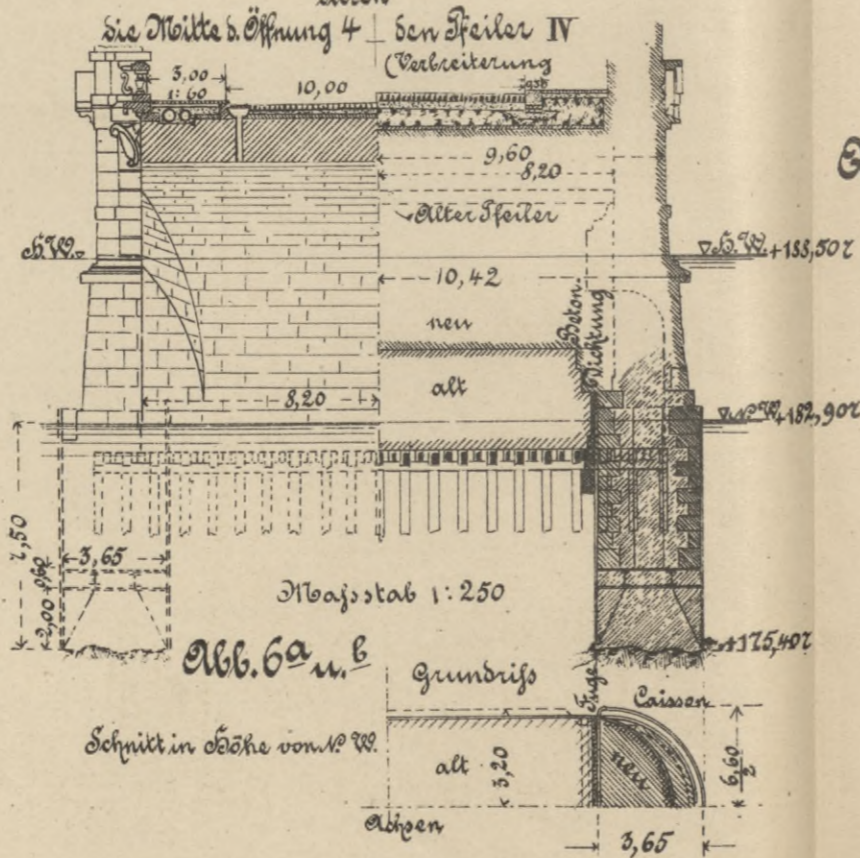 die Mitte d. Öffnung 4 den Pfeiler IV
(Verbreiterung
3,00
1:60
10,00
9,60
8,20
Alter Pfeiler
H.W.
H.W. +188,507
10,42
neu
Beton-
Dichtung
alt
8,20
N.W. +182,907
7,50
3,65
0,60
2,00
Maßstab 1:250
+175,407
Abb. 6a u. b
Grundriß
Fuge
Caisson
Schnitt in Höhe von N.W.
alt
3,20
neu
6,60
2
Achsen
3,65